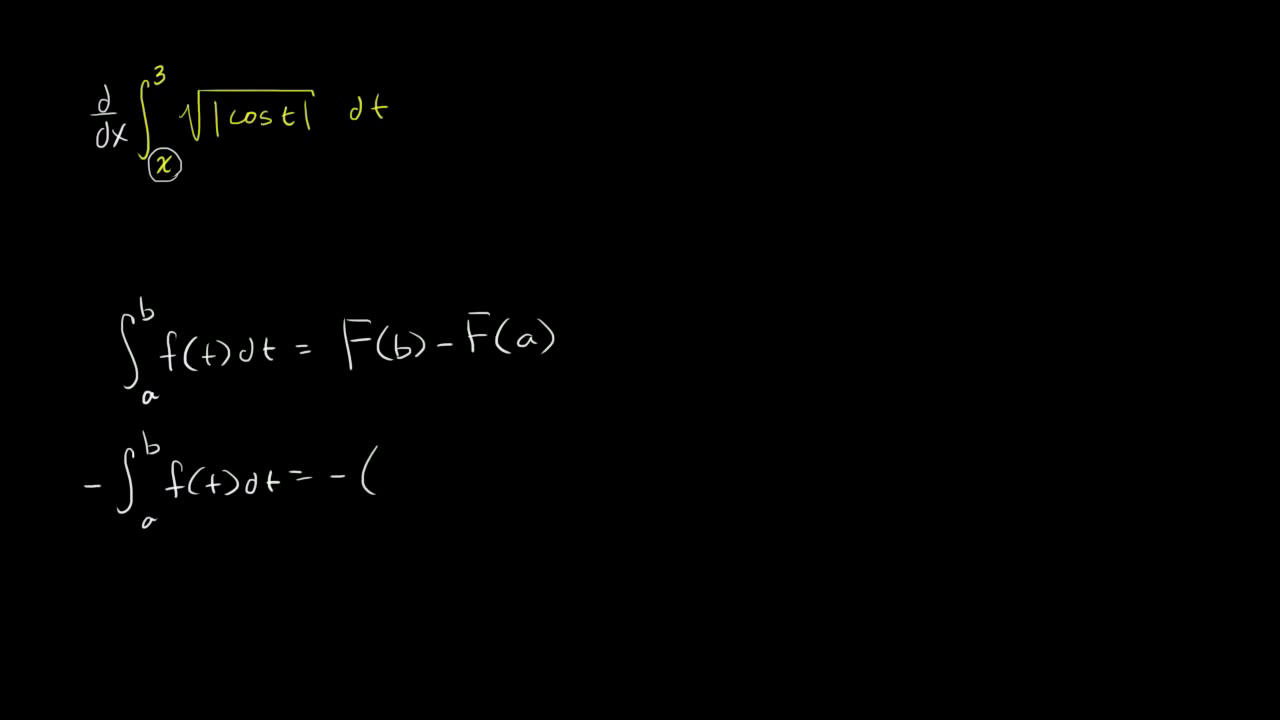 d/dx ∫_x^3 √|cos t| dt
∫_a^b f(t)dt = F(b) - F(a)
- ∫_a^b f(t)dt = - (